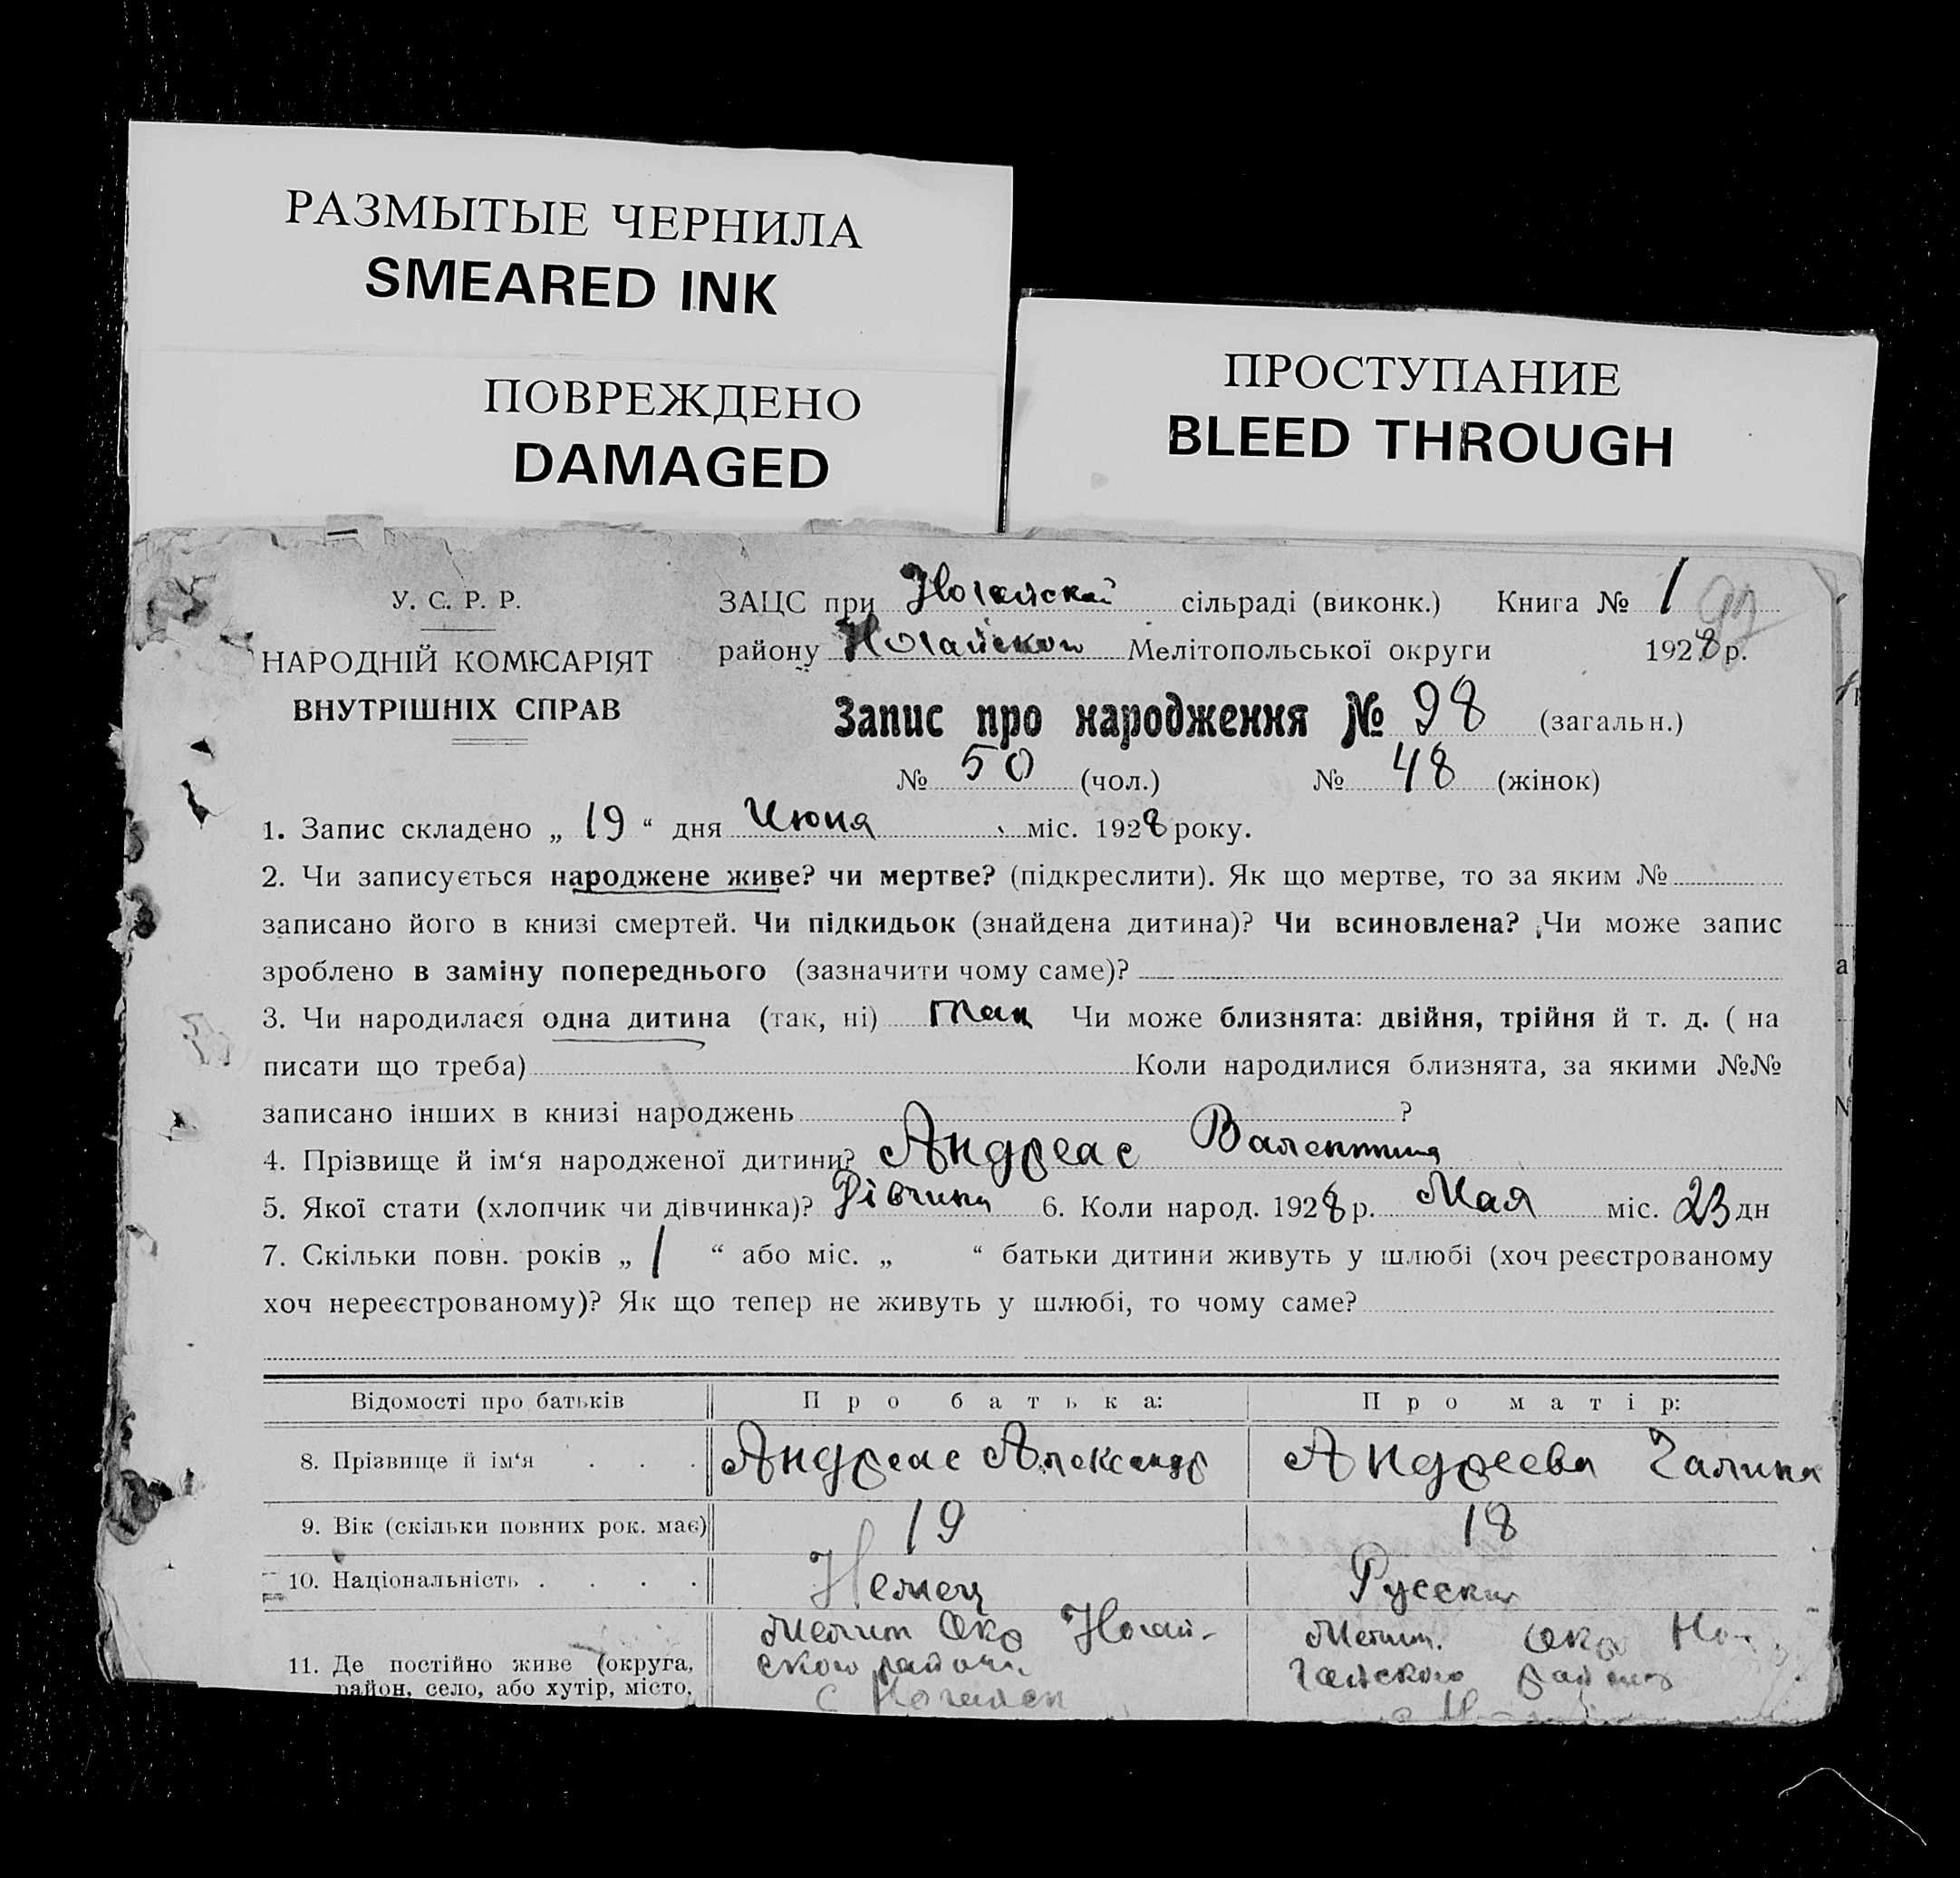 РАЗМЫТЫЕ ЧЕРНИЛА
SMEARED INK
ПОВРЕЖДЕНО
DAMAGED
ПРОСТУПАНИЕ
BLEED THROUGH
У. С. Р. Р.
НАРОДНІЙ КОМІСАРІЯТ
ВНУТРІШНІХ СПРАВ
ЗАЦС при Ногайской сільраді (виконк.) Книга № 1
району Ногайского Мелітопольської округи 1928 р.
Запис про народження № 98 (загальн.)
№ 50 (чол.) № 48 (жінок)
1. Запис складено „ 19 “ дня Июня міс. 1928 року.
2. Чи записується народжене живе? чи мертве? (підкреслити). Як що мертве, то за яким №
записано його в книзі смертей. Чи підкидьок (знайдена дитина)? Чи всиновлена? Чи може запис
зроблено в заміну попереднього (зазначити чому саме)?
3. Чи народилася одна дитина (так, ні) так Чи може близнята: двійня, трійня й т. д. ( на
писати що треба) Коли народилися близнята, за якими №№
записано інших в книзі народжень ?
4. Прізвище й ім‘я народженої дитини? Андреас Валентина
5. Якої стати (хлопчик чи дівчинка)? Дівчина 6. Коли народ. 1928 р. Мая міс. 23 дн
7. Скільки повн. років „ 1 “ або міс. „ “ батьки дитини живуть у шлюбі (хоч реєстрованому
хоч нереєстрованому)? Як що тепер не живуть у шлюбі, то чому саме?
Відомості про батьків Про батька: Про матір:
8. Прізвище й ім‘я . . . Андреас Александр Андреева Галина
9. Вік (скільки повних рок. має) 19 18
10. Національність . . . . Немец Русская
Мелит Окр Ногай- Мелит. окр Но
11. Де постійно живе (округа, ского района гайского района
район, село, або хутір, місто, с Ногайск с